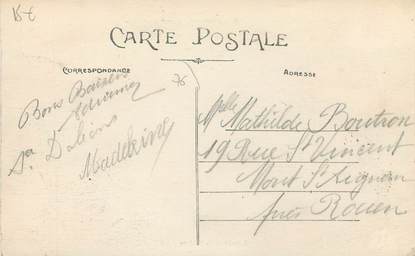 15 €
CARTE POSTALE
CORRESPONDANCE
ADRESSE
76
Bons Baisers
Madeleine
Mlle Mathilde Boutron
19 Rue St Vincent
Mont St Aignan
près Rouen